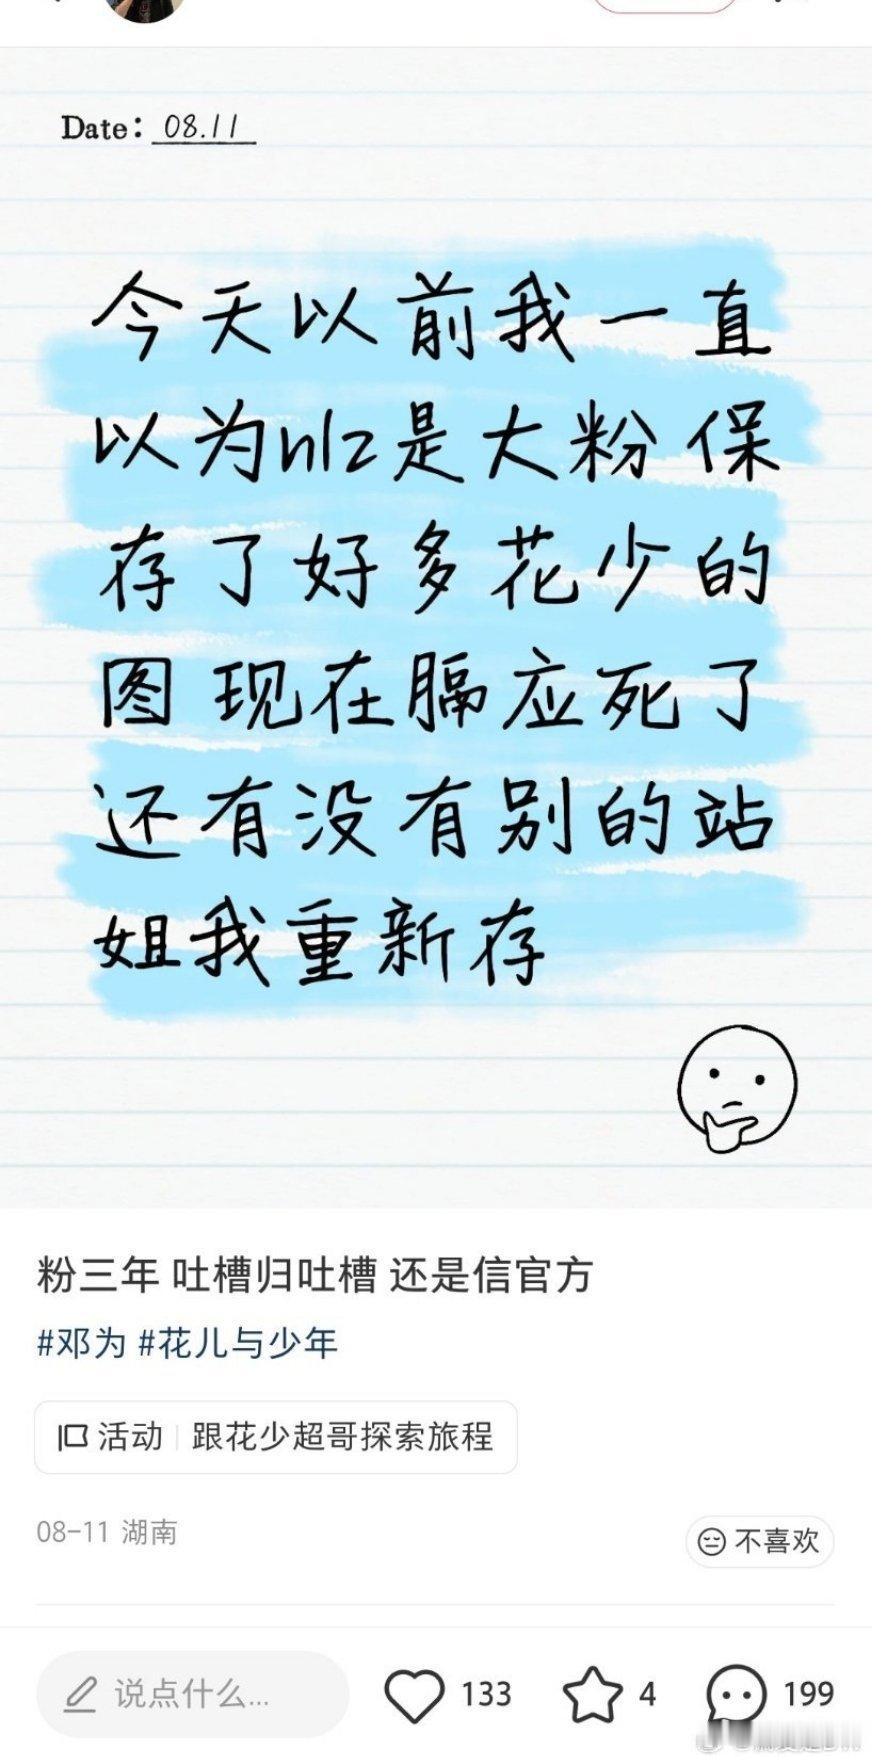 Date: 08.11
今天以前我一直
以为nlz是大粉 保
存了好多花少的
图 现在膈应死了
还有没有别的站
姐我重新存
粉三年 吐槽归吐槽 还是信官方
#邓为 #花儿与少年
活动 跟花少超哥探索旅程
08-11 湖南
不喜欢
说点什么...
133
4
199